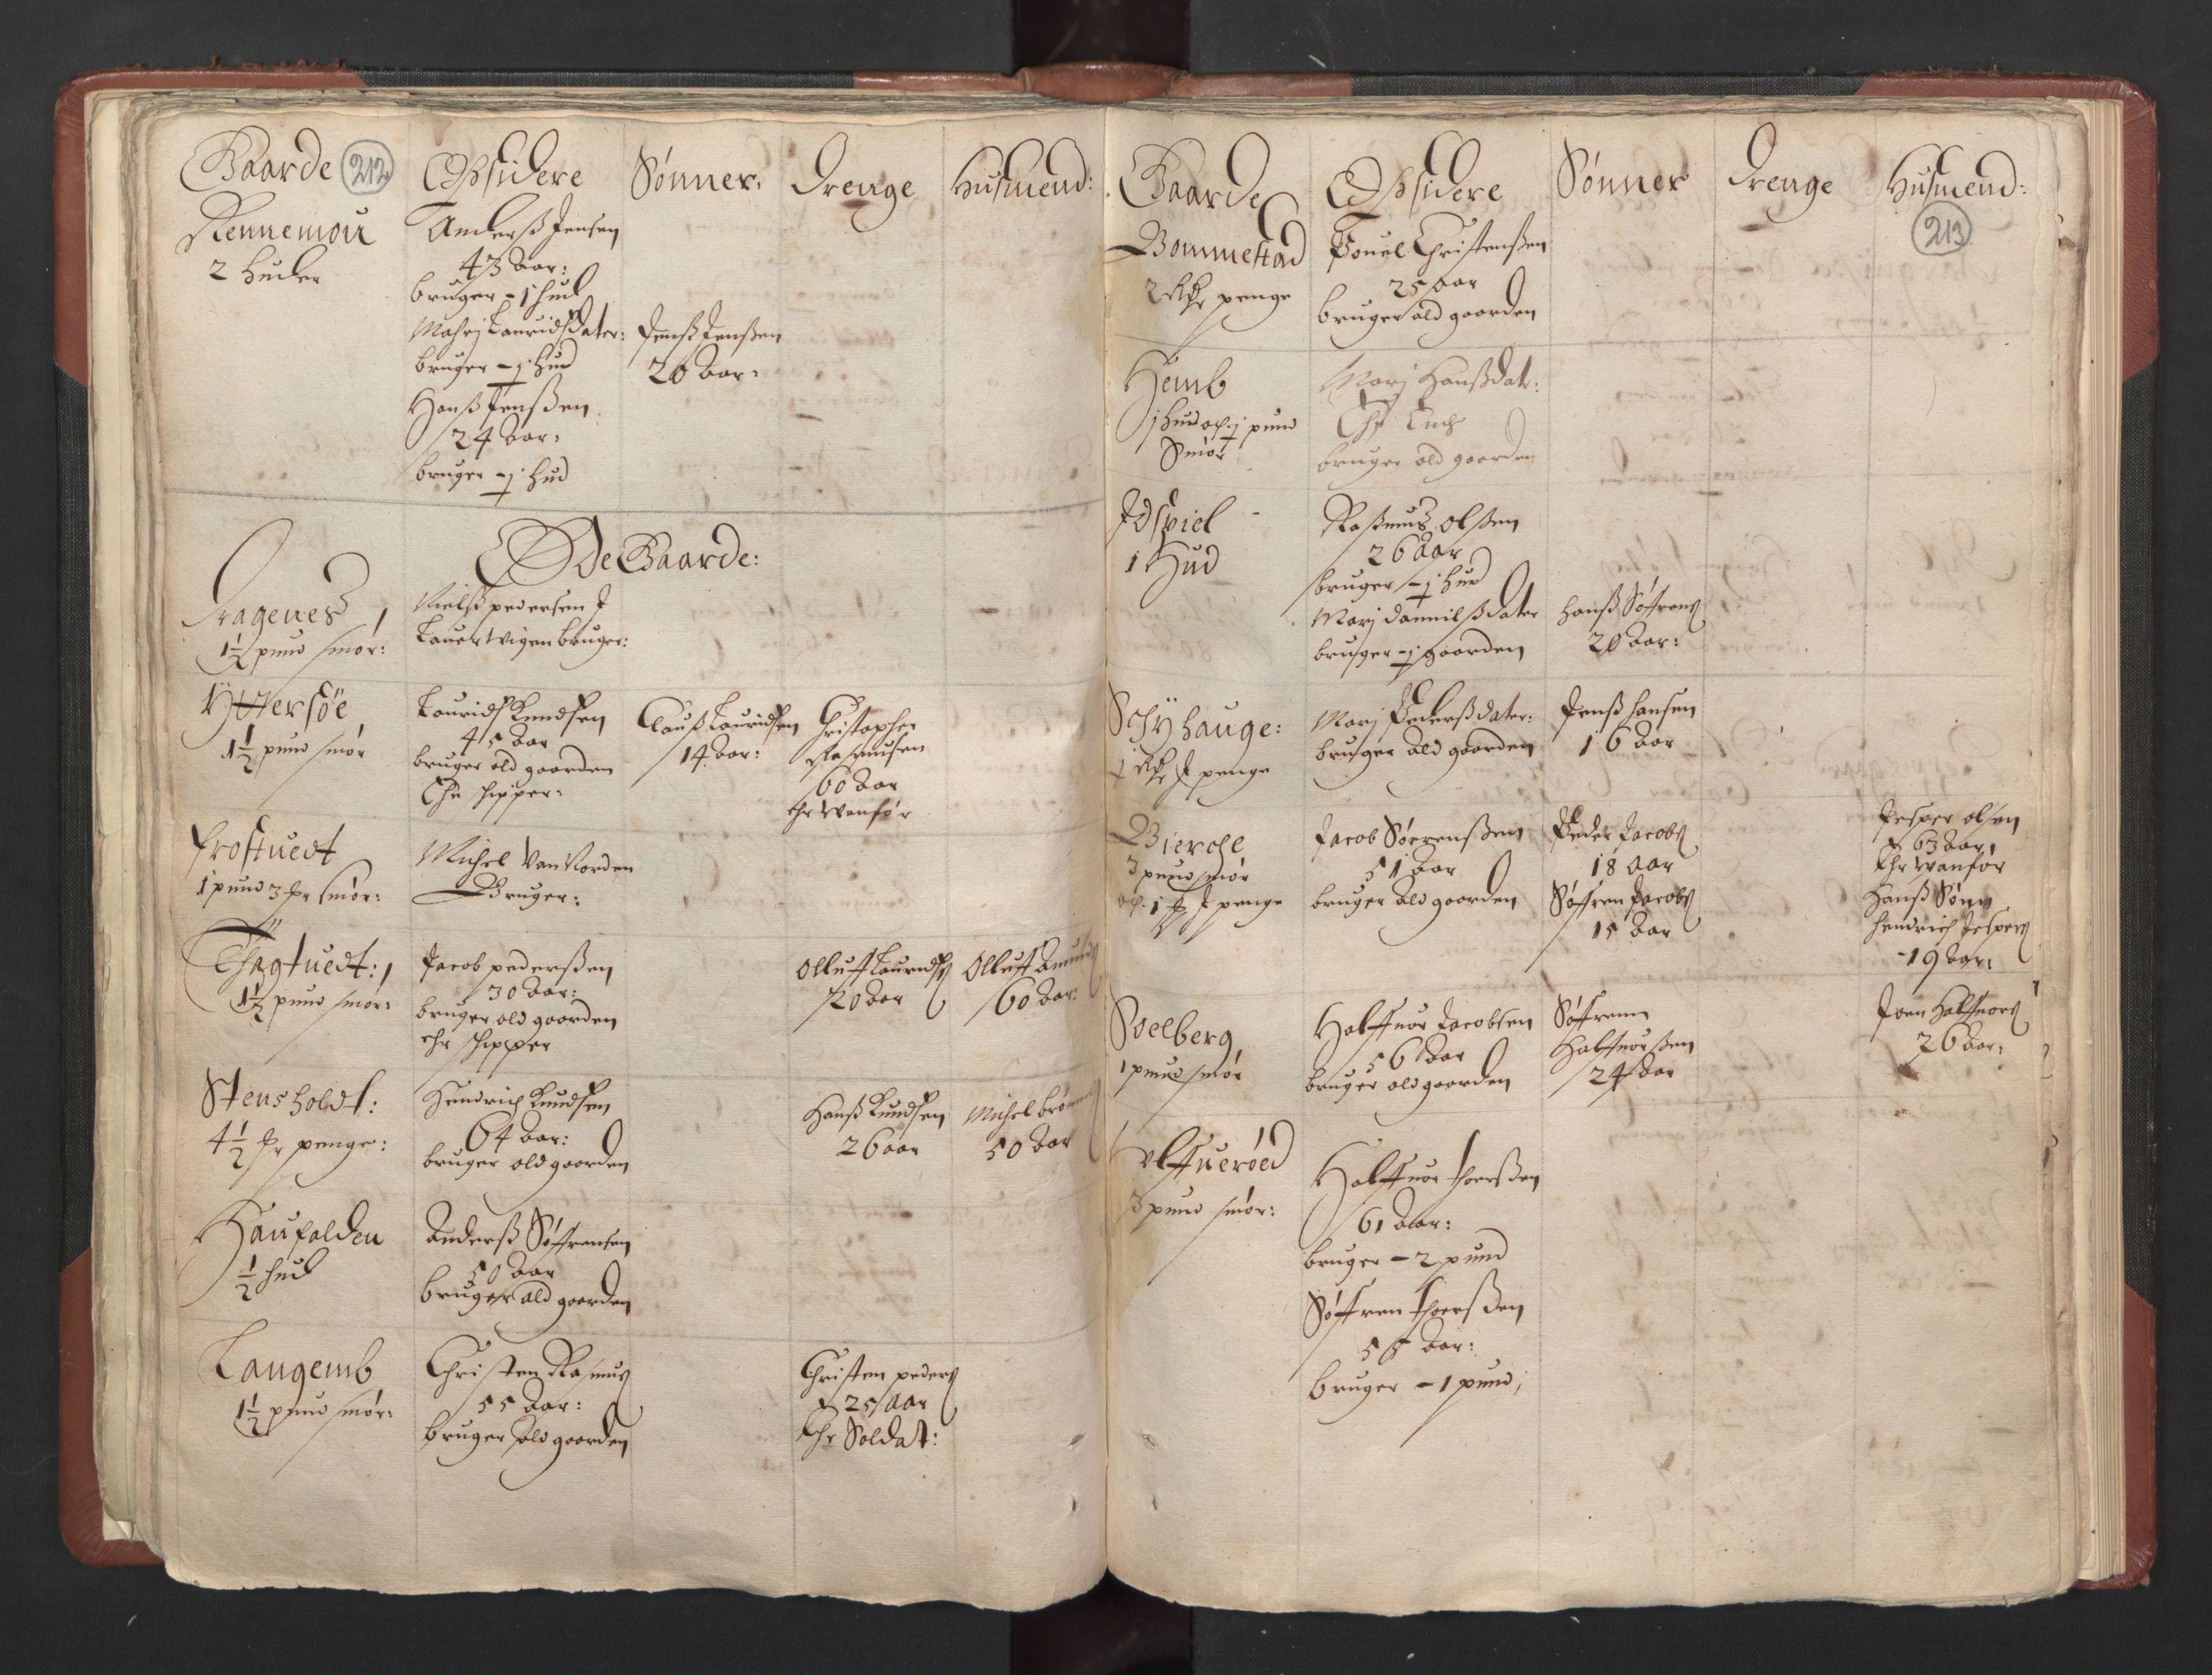 Gaarde 212 Opsidere Sønner. Drenge Husmend:
Rennemou
2 huder
Anderß Jensen
43 Aar:
bruger - j hud
Mahrj Lauridsdater:
bruger - j hud
Jenß Jenßen
20 Aar:
Hanß Jenßen
24 Aar:
bruger - j hud
Øde Gaarde:
Oragenes
1½ pund smør:
Nielß pedersen J
Laurwigen bruger:
Yttersøe
1½ pund smør
Laurids Knudsen
45 Aar
bruger ald gaarden
Ehr skipper:
Clauß Lauridsen
14 Aar:
Christopher
Rasmusen
60 Aar
ehr Wanfør
frostuedt
1 pund 3 mrk smør:
Michel Van Norden
Bruger:
Thagtuedt:
1½ pund smør:
Jacob pederßen
30 Aar:
bruger ald gaarden
ehr skipper
Olluff Lauridß
20 Aar
Olluff Amunds
60 Aar:
Stensholdt:
4½ mrk penge:
Hendrich Knudsen
64 Aar:
bruger ald gaarden
Hanß Knudsen
26 aar
Michel
50 Aar
Haufalden
½ hud
Anderß Søffrensen
50 Aar
bruger ald gaarden
Langemb
1½ pund smør:
Christen Rasmus
55 Aar:
bruger ald gaarden
Christen peders
25 Aar
Ehr Soldat:
Gaarde Opsidere Sønner Drenge Husmend:
213
Bommestad
2 Rdr penge
Pouel Christenßen
25 Aar
bruger ald gaarden
Hemb
1 hud och j pund
Smør
Marj Hanßdater:
Ehr Enche
bruger ald gaarden
Idspiel
1 Hud
Raßmus Olßen
26 Aar
bruger - j hud
Marj Dannilßdater
bruger - j gaarden
Hanß Søfrens
20 Aar:
Schÿhauge:
j Rdr J penge
Marj Pederßdater:
bruger Ald gaarden
Jenß hansen
16 Aar
Bierche
3 pund smør
och 1 mrk J penge
Jacob Søerenßen
51 Aar
bruger Ald gaarden
Peder Jacobs
18 Aar
Søffren Jacobs
15 Aar
Jesper Olsen
63 Aar,
Ehr Wanfør
Hanß Sønn
Hendrich Jespers
-19 Aar:
Soelberg
1 pund smør
Halffuor Jacobsen
56 Aar
bruger ald gaarden
Søffrenn
Halffuorßen
24 Aar
Joen Halffuors
26 Aar:
Elffuerøed
3 pund smør:
Halffuor Thorßen
61 Aar:
bruger - 2 pund
Søffren Thorßen
Aar:
bruger - 1 pund;